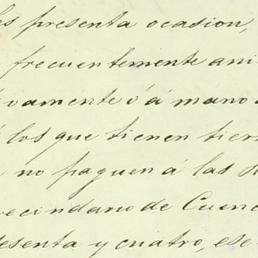 les presenta ocasion,
frecuentemente ani
vamente ó á mano
los que tienen tier
no paguen á las
vecindario de Cuenc
sesenta y cuatro, ese